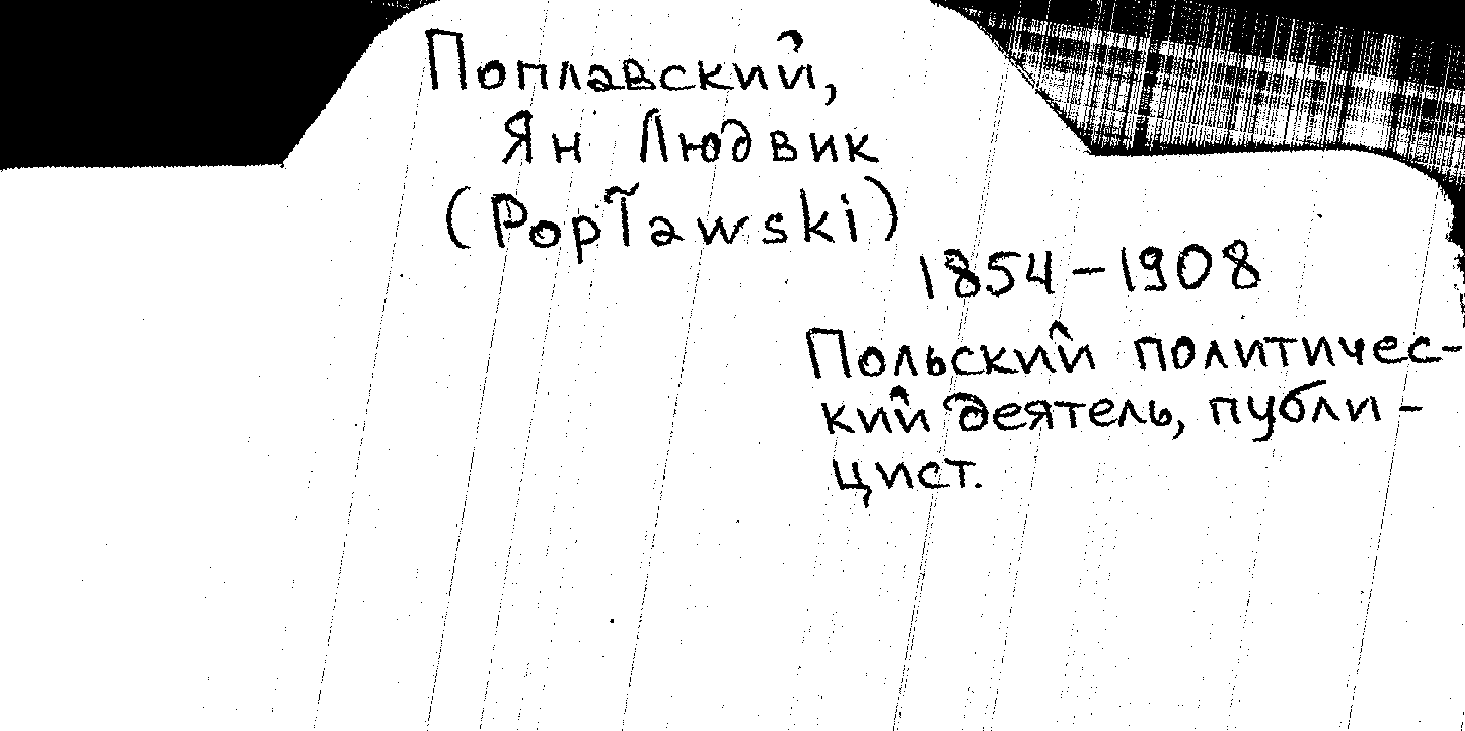 Поплавский,
Ян Людвик
(Popławski)
1854-1908
Польский политичес-
кий деятель, публи-
цист.